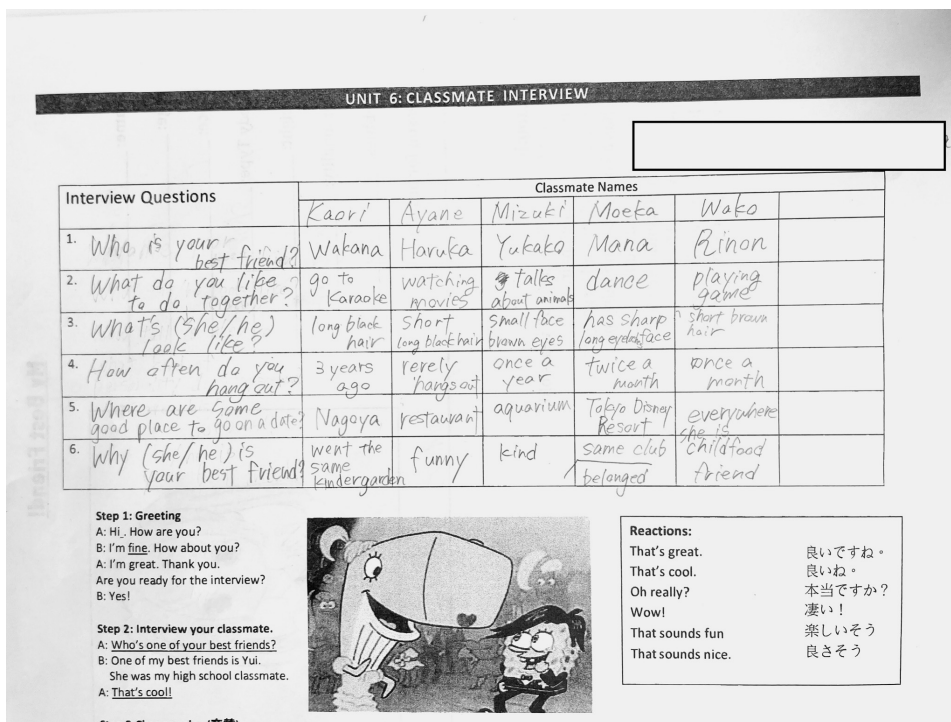 UNIT 6: CLASSMATE INTERVIEW
Interview Questions
Classmate Names
Kaori Ayane Mizuki Moeka Wako
1. Who is your
best friend?
Wakana Haruka Yukako Mana Rinon
2. What do you like
to do together?
go to
karaoke
watching
movies
talks
about animals
dance
playing
game
3. What's (she/he)
look like?
long black
hair
short
long black hair
small face
brown eyes
has sharp
long face
short brown
hair
4. How often do you
hang out?
3 years
ago
rerely
hangs out
once a
year
twice a
month
once a
month
5. Where are some
good place to go on a date?
Nagoya restaurant aquarium
Tokyo Disney
Resort
everywhere
6. Why (she/he) is
your best friend?
went the
same
kindergarden
funny
kind
same club
belonged
she is
childfood
friend
Step 1: Greeting
A: Hi . How are you?
B: I'm fine. How about you?
A: I'm great. Thank you.
Are you ready for the interview?
B: Yes!
Step 2: Interview your classmate.
A: Who's one of your best friends?
B: One of my best friends is Yui.
She was my high school classmate.
A: That's cool!
Reactions:
That's great. 良いですね。
That's cool. 良いね。
Oh really? 本当ですか？
Wow! 凄い！
That sounds fun 楽しいそう
That sounds nice. 良さそう
My Best Friend!!